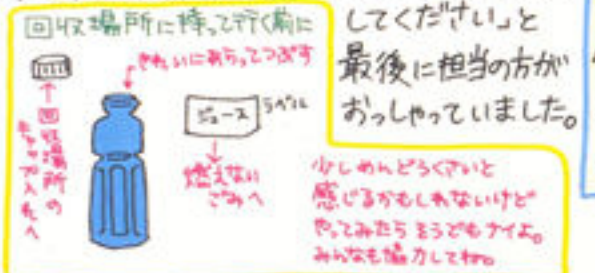 回収場所に持って行く前に
きれいにあらってつぶす
↑
回収場所の
キャップ入れへ
ジュース
ラベル
↓
燃えない
ごみへ
少しめんどうくさいと
感じるかもしれないけど
やってみたらそうでもナイよ。
みんなも協力してね。
してください」と
最後に担当の方が
おっしゃっていました。